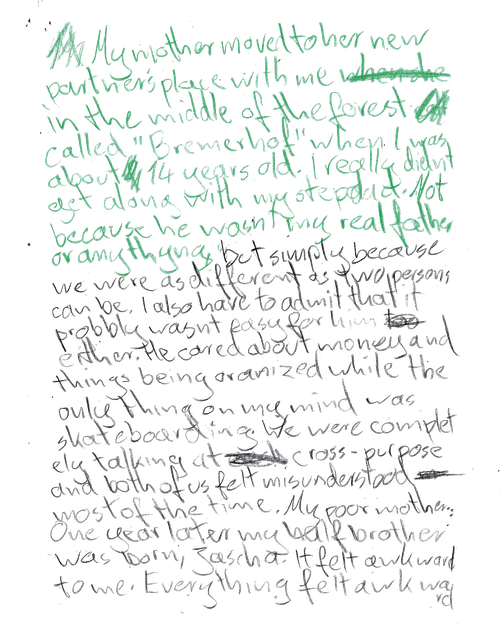 My mother moved to her new
partner's place with me
in the middle of the forest
called "Bremerhof" when I was
about 14 years old. I really didn't
get along with my stepdad. Not
because he wasn't my real father
or anythyng, but simply because
we were as different as two persons
can be. I also have to admit that it
probbly wasnt easy for him
either. He cared about money and
things being oranized while the
only thing on my mind was
skateboarding. We were complet
ely talking at cross-purpose
and both of us felt misunderstood
most of the time. My poor mother.
One year later my half brother
was born, Zascha. It felt awkward
to me. Everything felt awkwa
rd